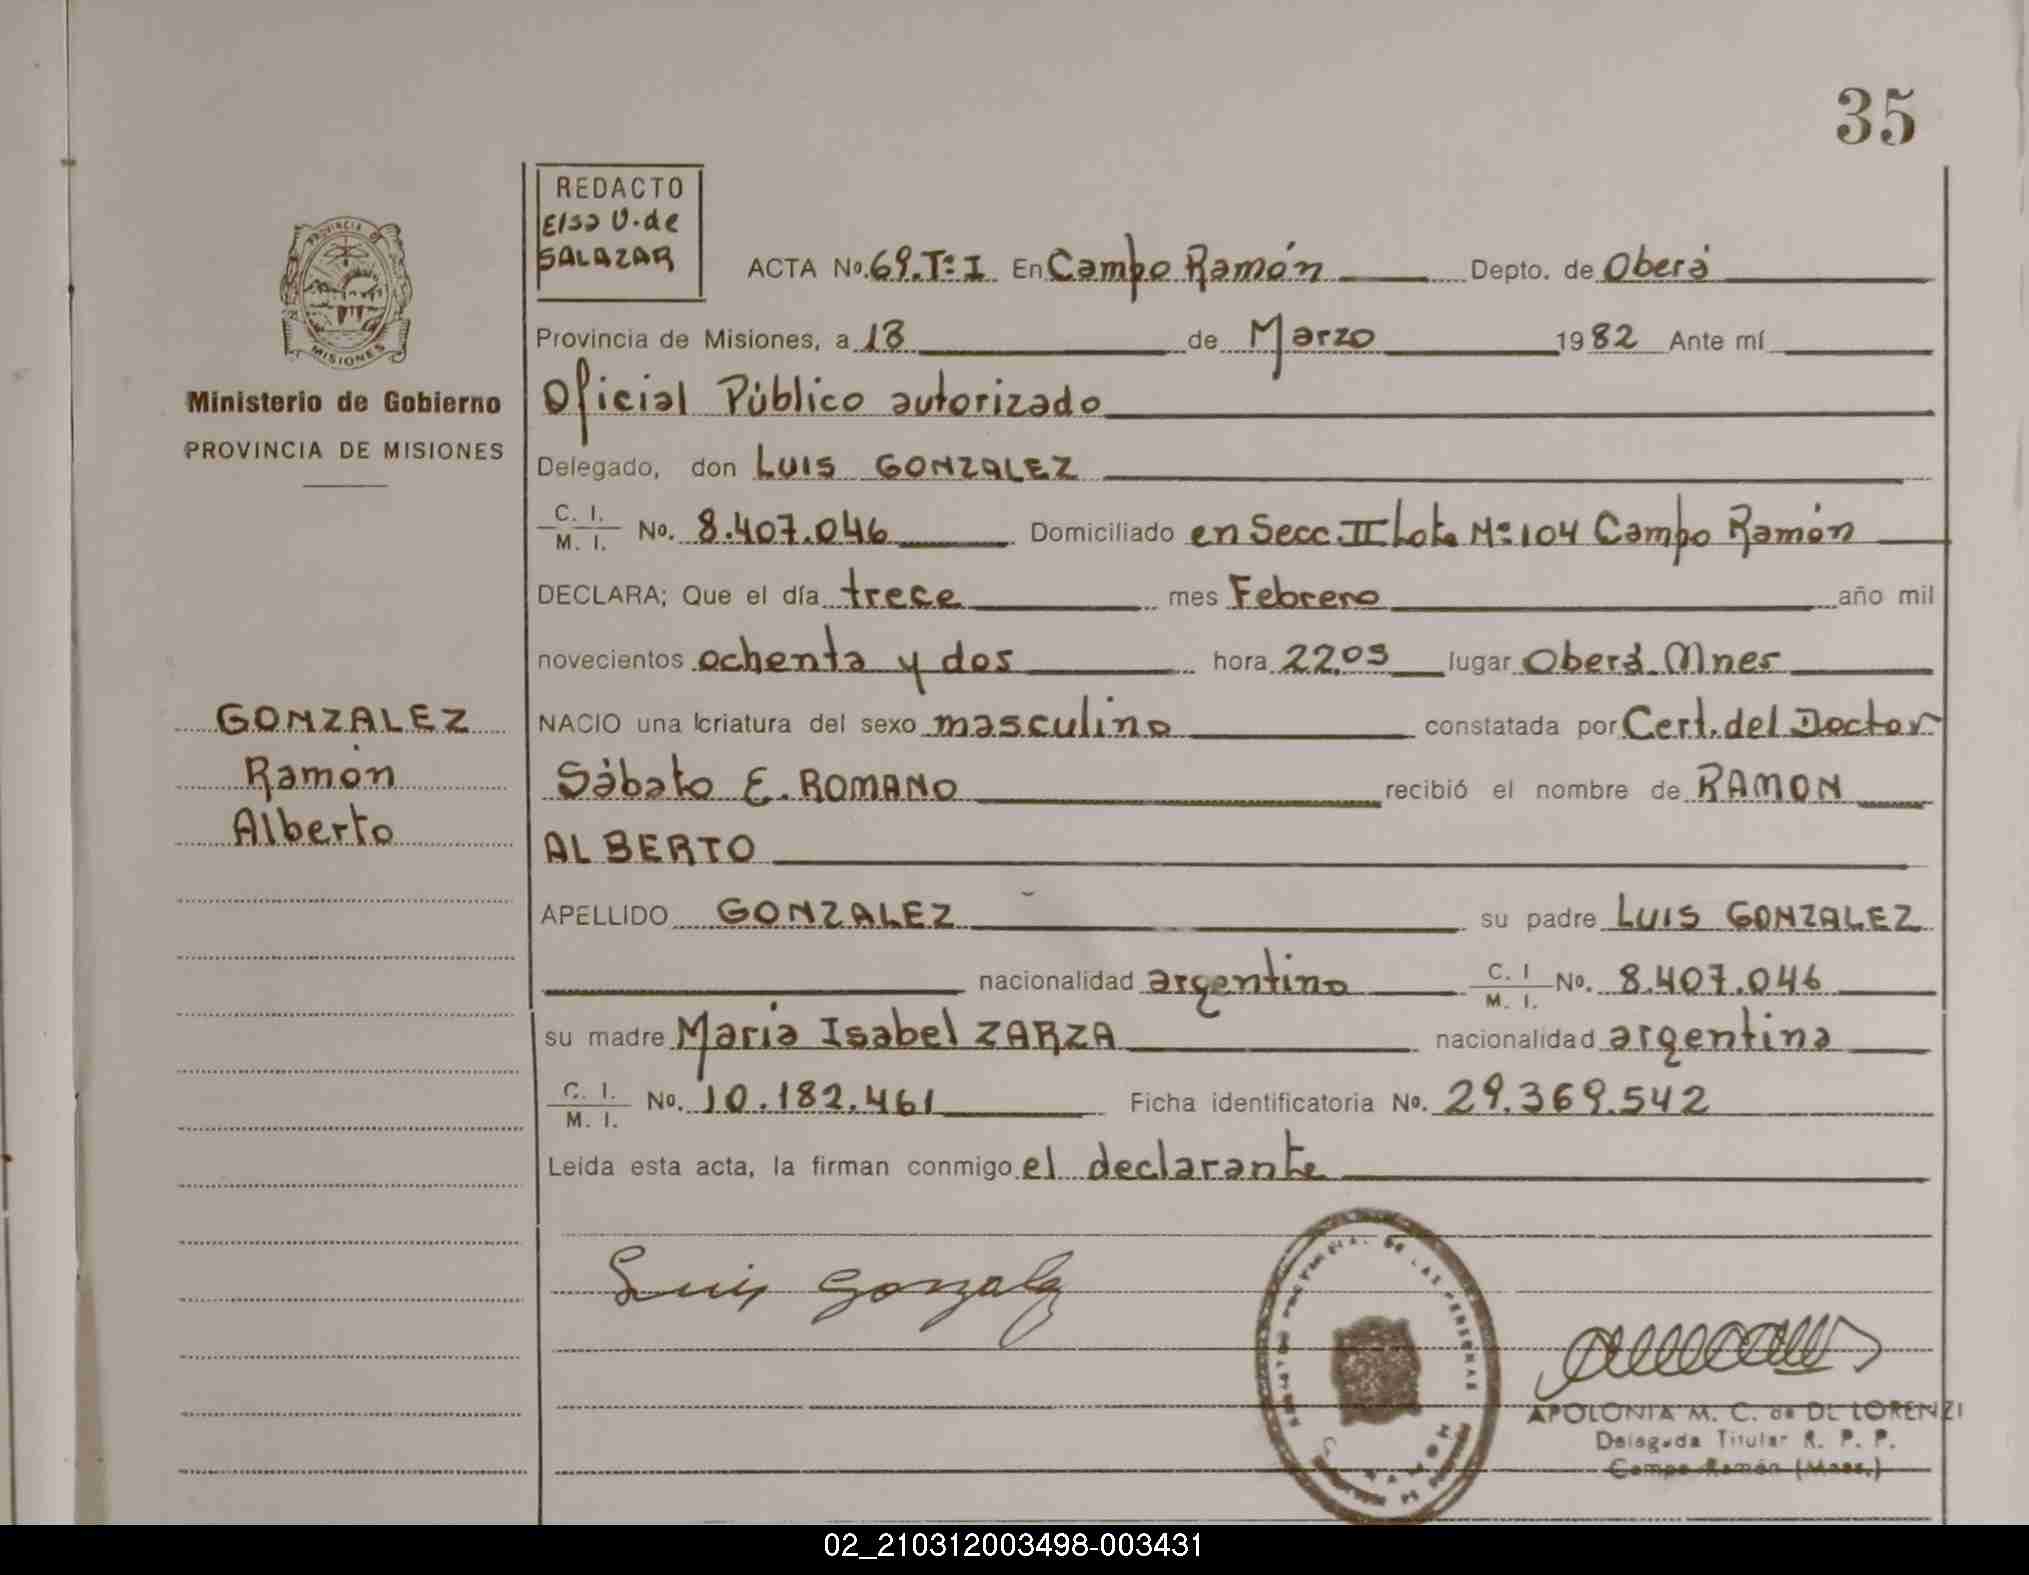 35
REDACTO
Elsa V. de
SALAZAR
ACTA No. 69.Tº I En Campo Ramón Depto. de Oberá
Provincia de Misiones, a 13 de Marzo 1982 Ante mí
Oficial Público autorizado
Delegado, don LUIS GONZALEZ
C. I.
M. I. No. 8.407.046 Domiciliado en Secc. II Lote Nº 104 Campo Ramón
DECLARA; Que el día trece mes Febrero año mil
novecientos ochenta y dos hora 22,05 lugar Oberá Mnes
NACIO una criatura del sexo masculino constatada por Cert. del Doctor
Sábato E. ROMANO recibió el nombre de RAMON
ALBERTO
APELLIDO GONZALEZ su padre LUIS GONZALEZ
nacionalidad argentino C. I
M. I. No. 8.407.046
su madre María Isabel ZARZA nacionalidad argentina
C. I.
M. I. No. 10.182.461 Ficha identificatoria No. 29.369.542
Leida esta acta, la firman conmigo el declarante
Luis Gonzalez
APOLONIA M. C. de DE LORENZI
Delegada Titular R. P. P.
Campo Ramón (Mnes.)
PROVINCIA DE
MISIONES
Ministerio de Gobierno
PROVINCIA DE MISIONES
GONZALEZ
Ramón
Alberto
02_210312003498-003431